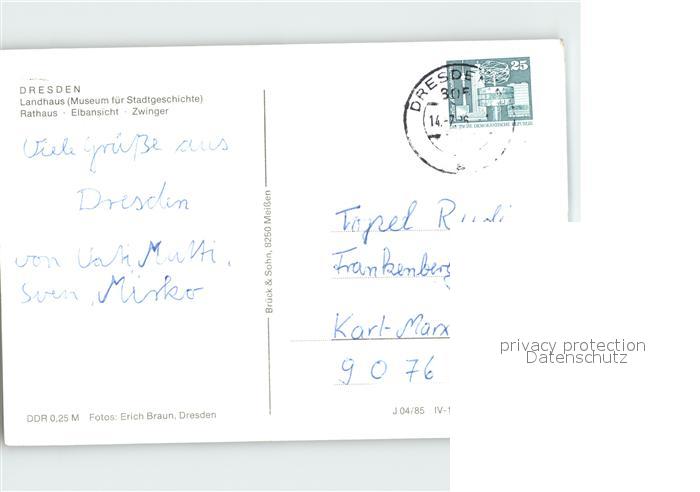 DRESDEN
Landhaus (Museum für Stadtgeschichte)
Rathaus · Elbansicht · Zwinger
Viele Grüße aus
Dresden
von Vati, Mutti,
Sven, Mirko
DDR 0,25 M Fotos: Erich Braun, Dresden
Brück & Sohn, 8250 Meißen
DRESDEN
25
DEUTSCHE DEMOKRATISCHE REPUBLIK
Frankenberg
Karl-Marx
9076
J 04/85 IV-1
privacy protection
Datenschutz